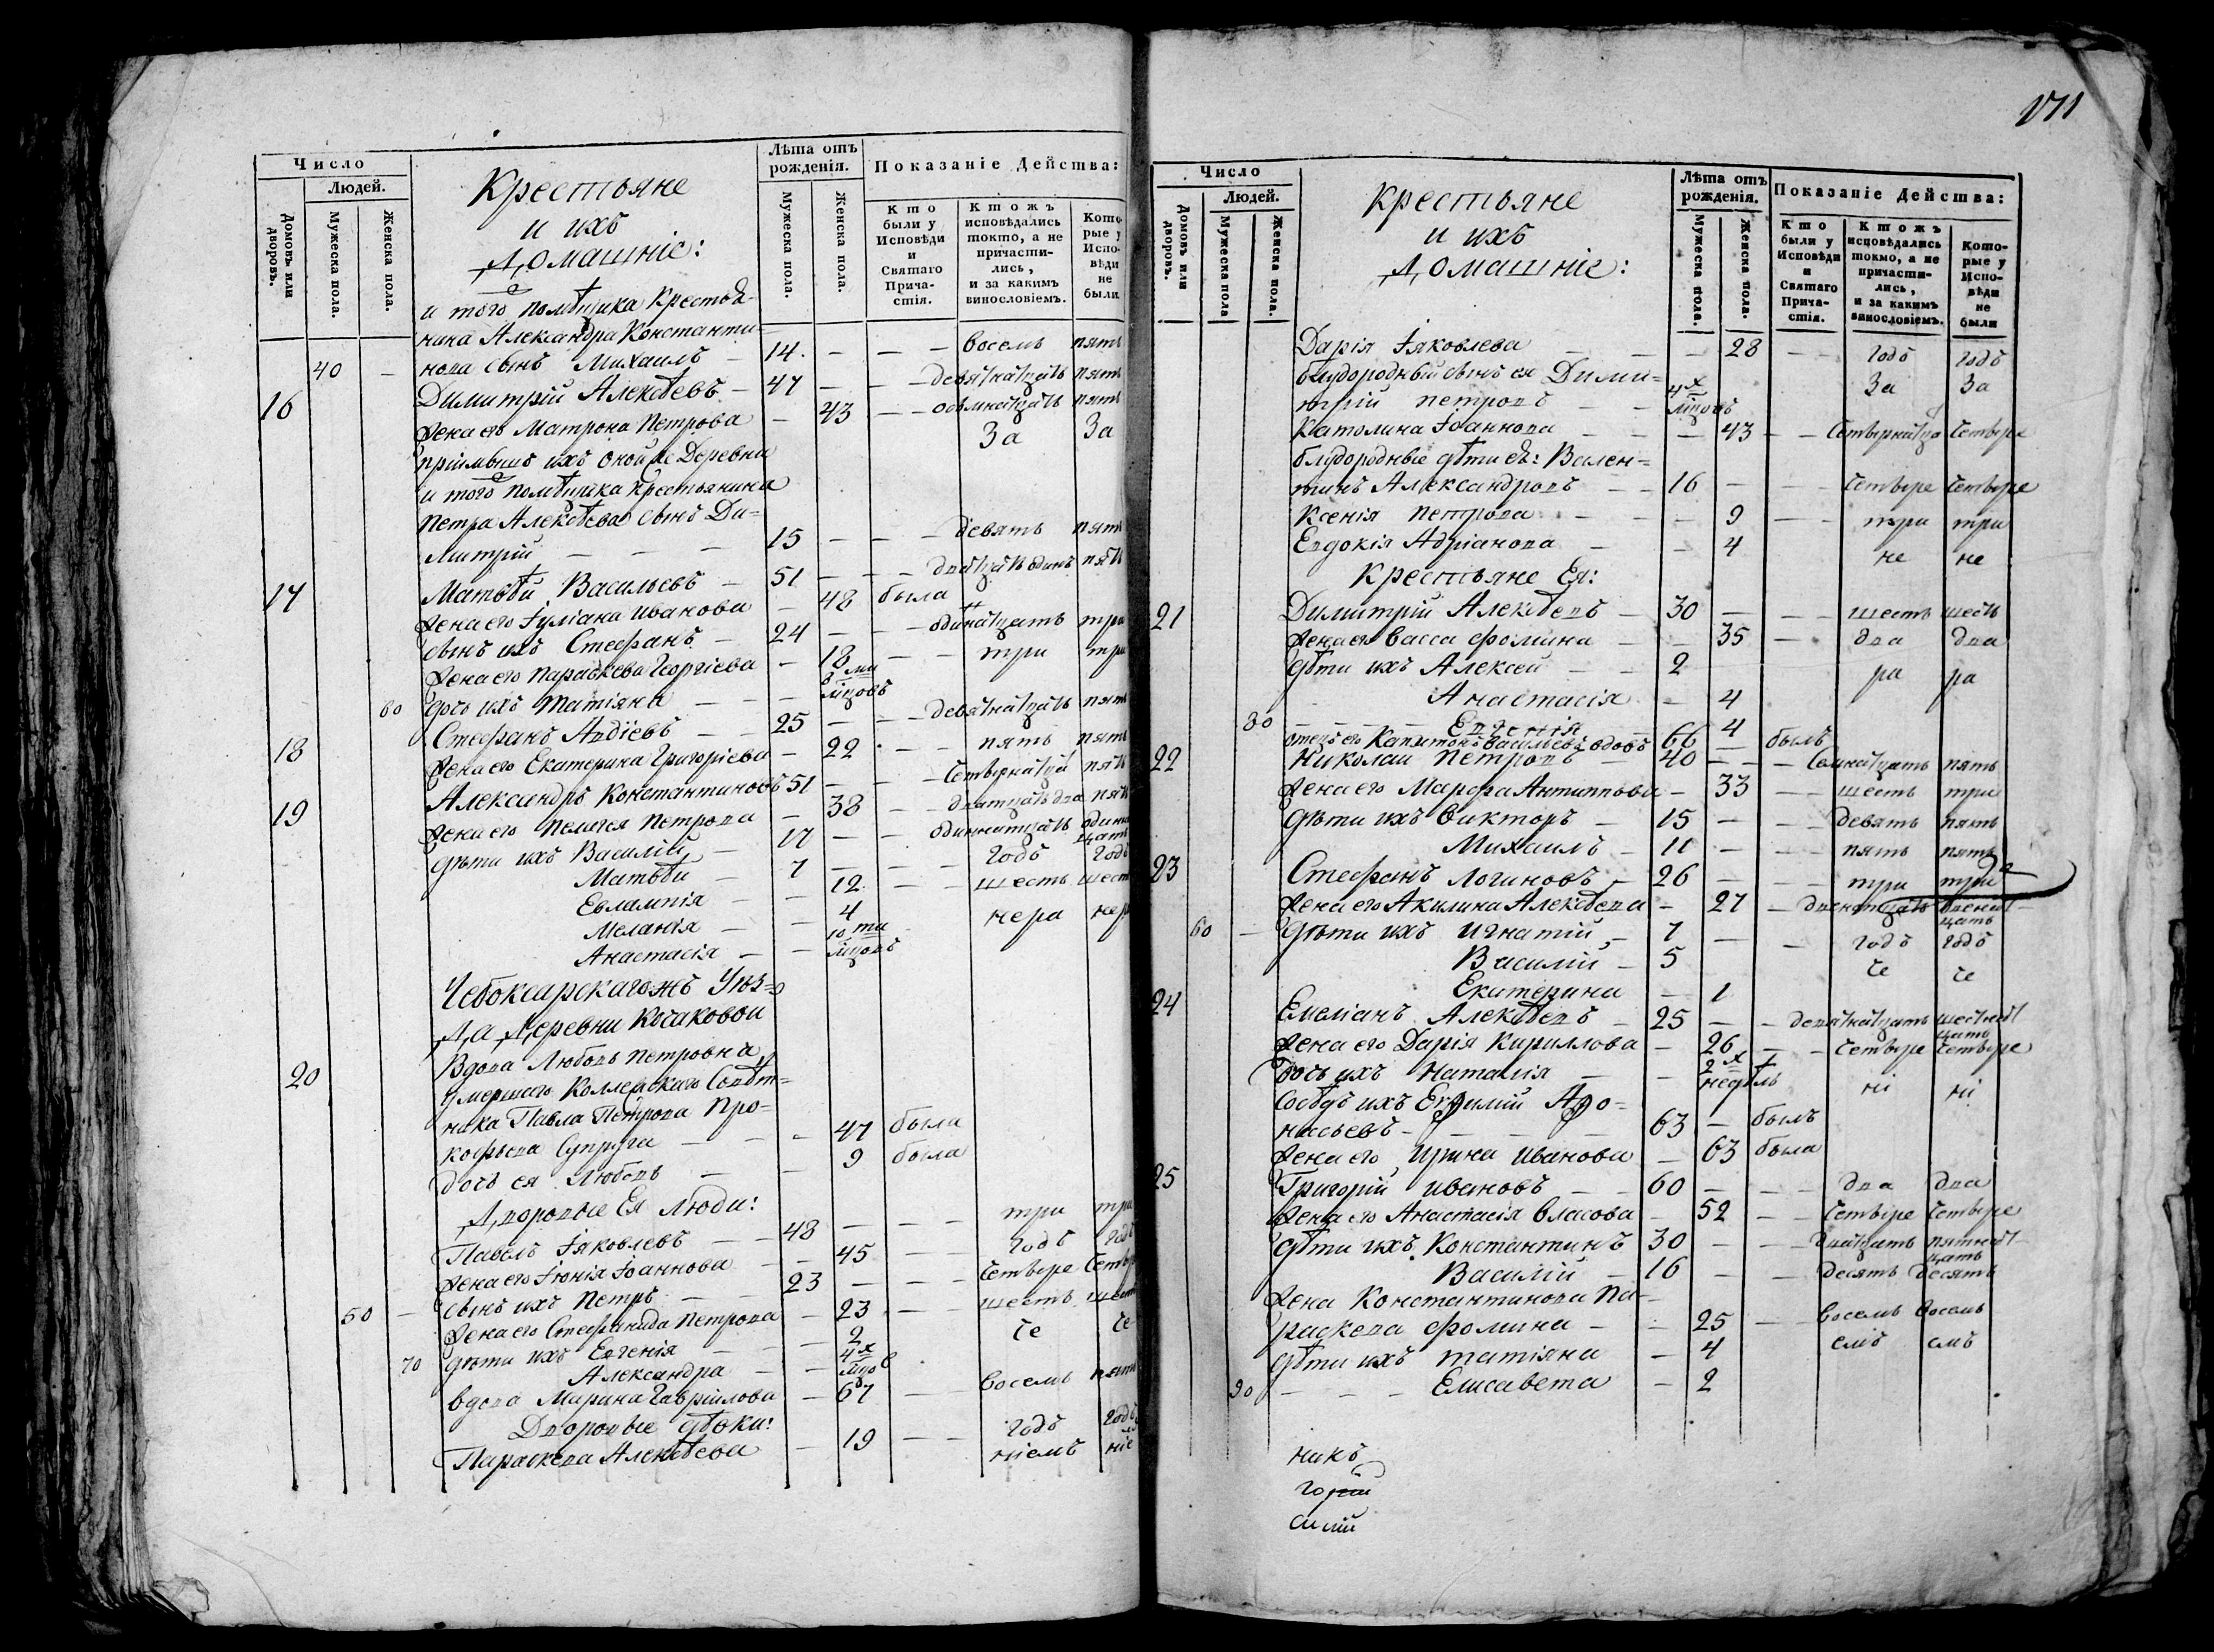 Число
Людей.
Домовъ или дворовъ.
Мужеска пола.
Женска пола.
Крестьяне
и ихъ
Домашніе:
Лѣта отъ рожденія.
Мужеска пола.
Женска пола.
Показаніе Действа:
Кто были у Исповѣди и Святаго Причастія.
Ктожъ исповѣдались токмо, а не причастились, и за какимъ винословіемъ.
Которые у Исповѣди не были
и того помѣщика Крестья-
нина Александра Константи-
40 — нова сынъ Михаилъ — 14. — — — восемь пять
16 Димитрій Алексѣевъ — 47 — — — девятнатцать пять
Жена его Матрона Петрова — 43 — — осьмнатцать пять
пріимышъ ихъ оной же Деревни За За
и того помѣщика крестьянина
Петра Алексѣева сынъ Ди-
митрій — — — 15 — — — девять пять
17 Матѳей Васильевъ — 51 — — — дватцать одинъ пять
Жена его Іуліана Иванова — 48 была
сынъ ихъ Стефанъ — 24 — — — одинатцать три
Жена его Параскева Георгіева — 18 — — три три
60 дочь ихъ Татіяна — — — 8 ми мцовъ
18 Стефанъ Авдіевъ — — 25 — — — девятнатцать пять
Жена его Екатерина Григоріева — 22 — — пять пять
19 Александръ Константиновъ 51 — — — четырнатцать пять
Жена его Пелагея Петрова — 38 — — дватцать два пять
дѣти ихъ Василій — 17 — — одиннатцать одина цать
Матѳей — 7 — — — годъ годъ
Евлампія — — 12 — — шесть шест
Меланія — — 4 нера нер
Анастасія — — 10 ти мцовъ
Чебоксарскагожъ Уѣз-
да Деревни Косаковой
20 Вдова Любовь Петровна,
умершаго Коллежскаго Совѣт-
ника Павла Петрова Про-
кофьева Супруга — — — 47 была
дочь ея Любовь — — 9 была
Дворовые Ея Люди:
Павелъ Іяковлевъ — — 48 — — — три три
Жена его Іюнія Іоаннова — — 45 — годъ годъ
50 — сынъ ихъ Петръ — — 23 — — — четыре четыр
Жена его Стефанида Петрова — 23 — — шесть шест
70 дѣти ихъ Евгенія — — — 2 че че
Александра — — 4 х мцов
вдова Марина Гавріилова — 67 — — восемь пять
Дворовые дѣвки:
Параскева Алексѣева — 19 — — годъ годъ
ніемъ ніе
171
Число
Людей.
Домовъ или дворовъ.
Мужеска пола
Женска пола.
Крестьяне
и ихъ
Домашніе:
Лѣта отъ рожденія.
Мужеска пола.
Женска пола.
Показаніе Действа:
Кто были у Исповѣди и Святаго Причастія.
Ктожъ исповѣдались токмо, а не причастились, и за какимъ винословіемъ.
Которые у Исповѣди не были
Дарія Іяковлева — — — 28 — — годъ годъ
блудородный сынъ ея Дими- За За
трій Петровъ — — 4 х мцовъ
Католина Іоаннова — — — 43 — — четырнатца четыре
блудородные дѣти еѣ: Вален-
тинъ Александровъ — — 16 — — — четыре четыре
Ксенія Петрова — — — 9 — — три три
Евдокія Адріанова — — 4 не не
Крестьяне Ея:
21 Димитрій Алексѣевъ — 30 — — — шесть шесть
Жена его Васса Фомина — — 35 — — два два
дѣти ихъ Алексей — — 2 ра ра
Анастасія — 4
80 — — — — Евгенія — 4
отецъ его Капитонъ Васильевъ вдовъ 66 — былъ
22 Николаи Петровъ — 40 — — — семнатцать пять
Жена его Марфа Антиппова — 33 — — шесть три
дѣти ихъ Викторъ — 15 — — — девять пять
Михаилъ — 11 — — — пять пять
23 Стефанъ Логиновъ — 26 — — — три три
Жена его Акилина Алексѣева — 27 — двенатцать двенат цать
60 — дѣти ихъ Игнатій — 7 — — годъ годъ
Василій — 5 че че
Екатерина — 1
24 Емеліанъ Алексѣевъ — 25 — — девятнатцать шеснат цать
Жена его Дарія Кириллова — 26 — — четыре четыре
Дочь ихъ Наталія — — 2 х недѣль ні ні
Сосѣдъ ихъ Евфимій Афо-
насьевъ — — — — — 63 — былъ
Жена его Ирина Иванова — 63 была
25 Григорій Ивановъ — — 60 — — — два два
Жена его Анастасія Власова — 52 — — четыре четыре
дѣти ихъ Константинъ 30 — — — дватцать пятнат цать
Василій — 16 — — десять десять
Жена Константинова Па-
раскева Фомина — — 25 — — восемь восемь
дѣти ихъ Татіяна — 4 емъ емъ
90 — — — — Елисавета — 2
никъ
горій
силій